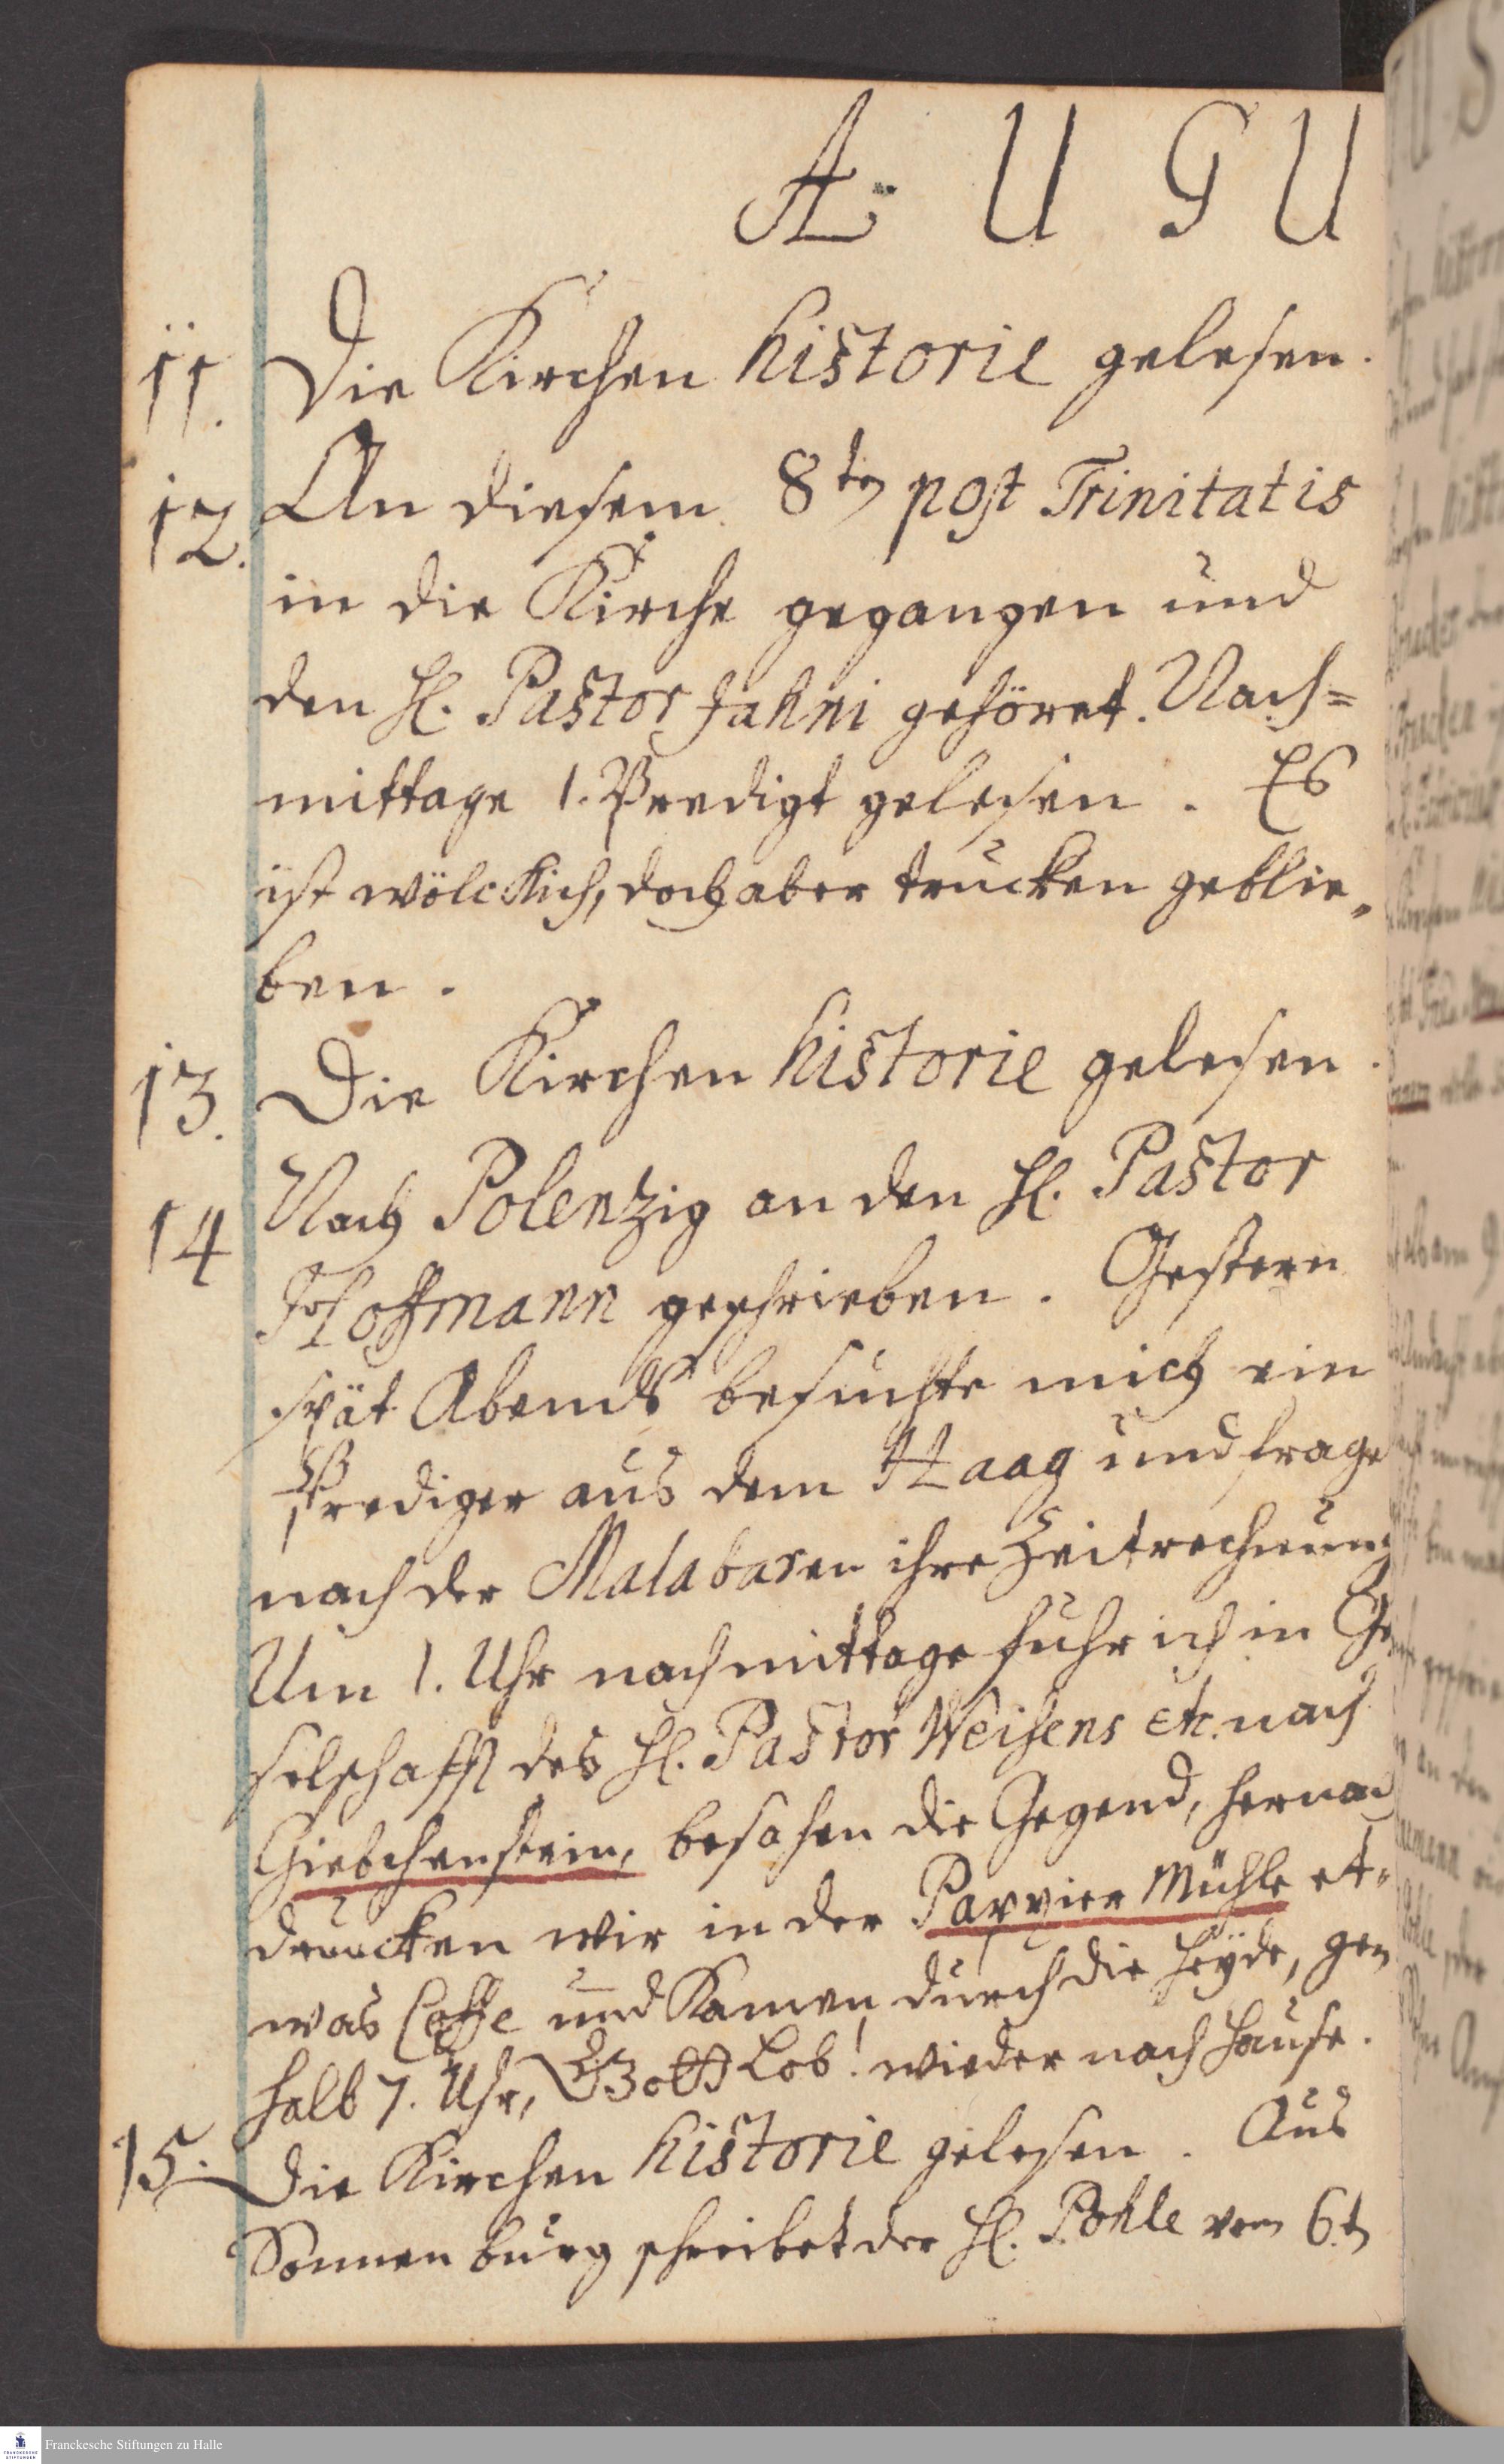 A U G U
11. Die Kirchen historie gelesen.
12. An diesem 8ten post Trinitatis
in die Kirche gegangen und
den H. Pastor Jahni gehöret. Nach=
mittage 1. Predigt gelesen. Es
ist wölcklich, doch aber trucken geblie„
ben.
13. Die Kirchen historie gelesen.
14 Nach Polenzig an den H. Pastor
Hoffmann geschrieben. Gestern
spät Abends besuchte mich ein
Prediger aus dem Haag und frage
nach der Malabaren ihre Zeitrechnung
Um 1. Uhr nachmittage fuhr ich in Ge
selschafft des H. Pastor Weisens etc. nach
Giebchenstein, besahen die Gegend, hernach
druncken wir in der Pappier Mühle et„
was Coffe und Kamen durch die Heyde, gen
halb 7. Uhr, Gott Lob! wieder nach Hause.
15. Die Kirchen historie gelesen. Aus
Sonnenburg schreibet der H. Pohle vom 6t
Franckesche Stiftungen zu Halle